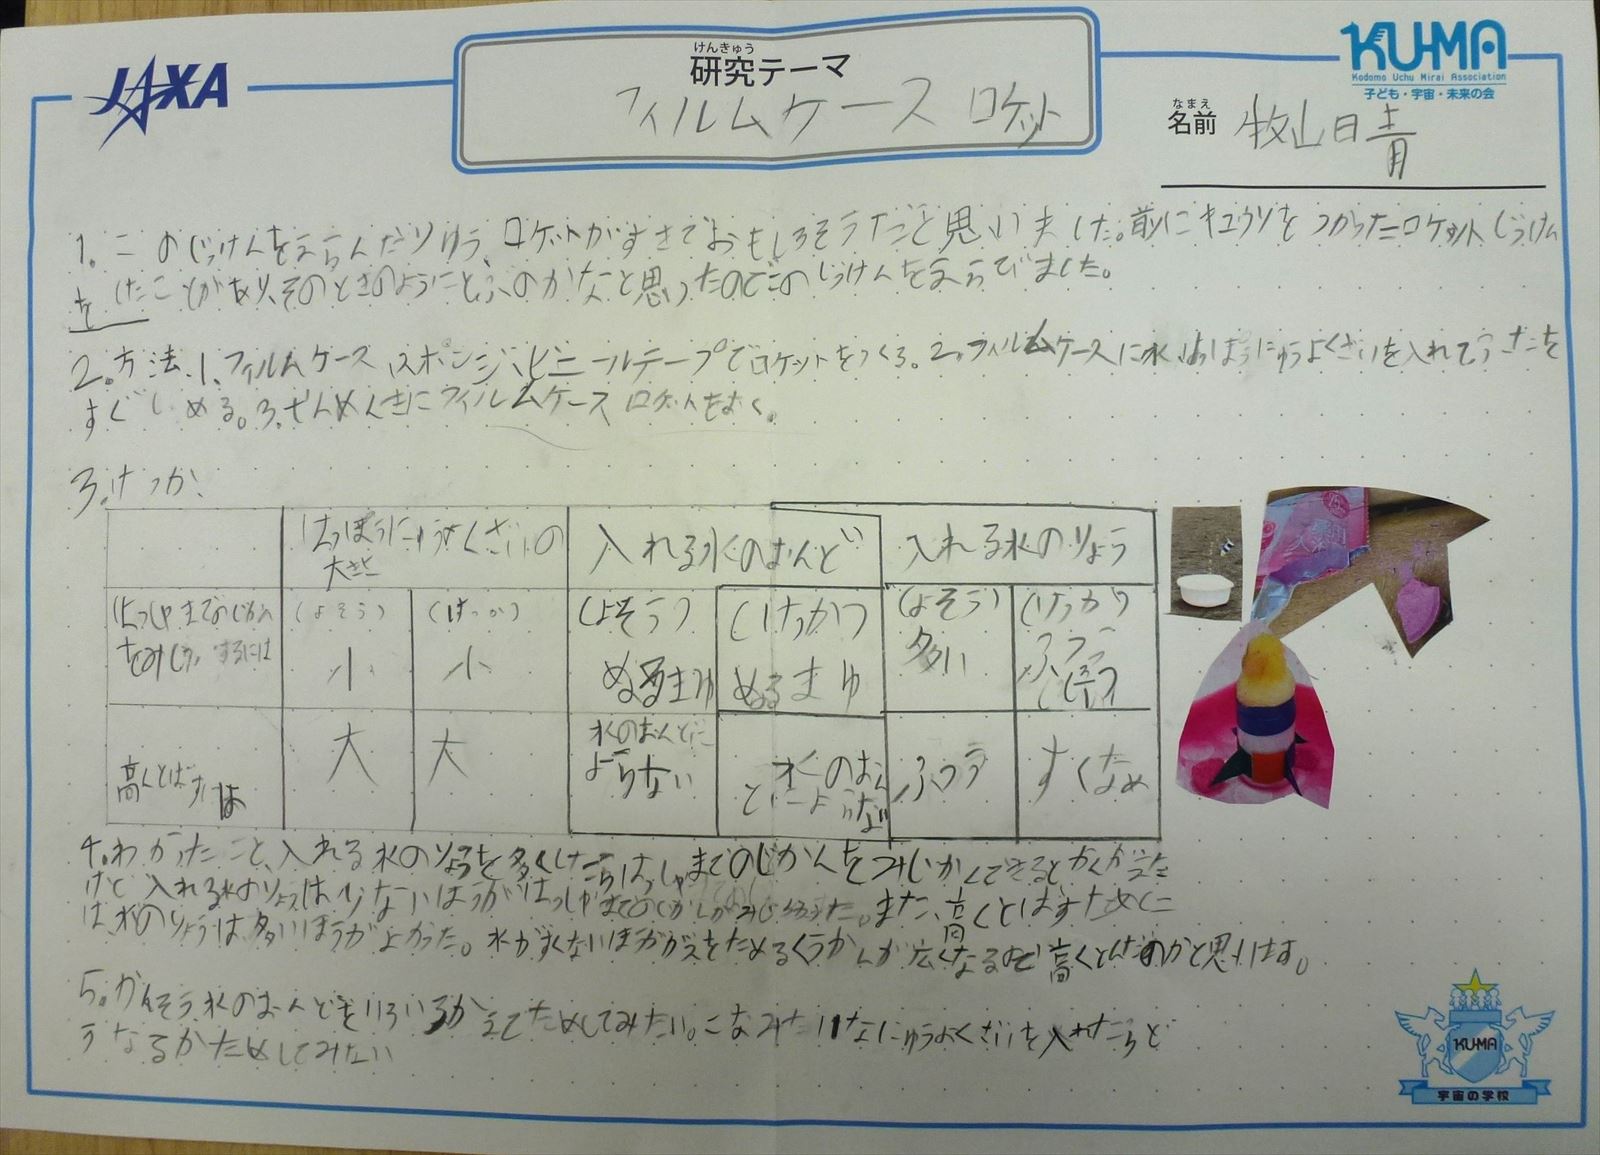 JAXA
けんきゅう
研究テーマ
フィルムケース ロケット
KUMA
Kodomo Uchu Mirai Association
子ども・宇宙・未来の会
なまえ
名前 牧山晴
1.このじっけんをえらんだりゆう、ロケットがすきでおもしろそうだと思いました。前にキュウソをつかったロケットじっけん
をしたことがあり、そのときのようにとぶのかなと思ったのでこのじっけんをえらびました。
2.方法.1.フィルムケース、スポンジ、ビニールテープでロケットをつくる。2.フィルムケースに水、はっぽうにゅうよくざいを入れてうちこを
すぐしめる。3.ぜんめんきにフィルムケースロケットをおく。
3.けっか、
はっぽうにゅうよくざいの大きさ
入れる水のおんど
入れる水のりょう
はっしゃまでのじかんをみじかくするには
(よそう) 小
(けっか) 小
(よそう) ぬるまゆ
(けっか) ぬるまゆ
(よそう) 多い
(けっか) ふつう
高くとばすには
大
大
水のおんどによらない
水のおんどによらない
ふつう
すくなめ
4.わかったこと、入れる水のりょうを多くしたらはっしゃまでのじかんをみじかくできるとかんがえた
けど 入れる水のりょうは少ないほうがはっしゃまでのじかんがみじかかった。また、高くとばすために
は、水のりょうは多いほうがよかった。水がすくないほうががスをためるくうかんが広くなるので高くとんだのかと思います。
5.かんそう、水のおんどをいろいろかえてためしてみたい。こなみたいなにゅうよくざいを入れたらど
うなるかためしてみたい
KUMA
宇宙の学校